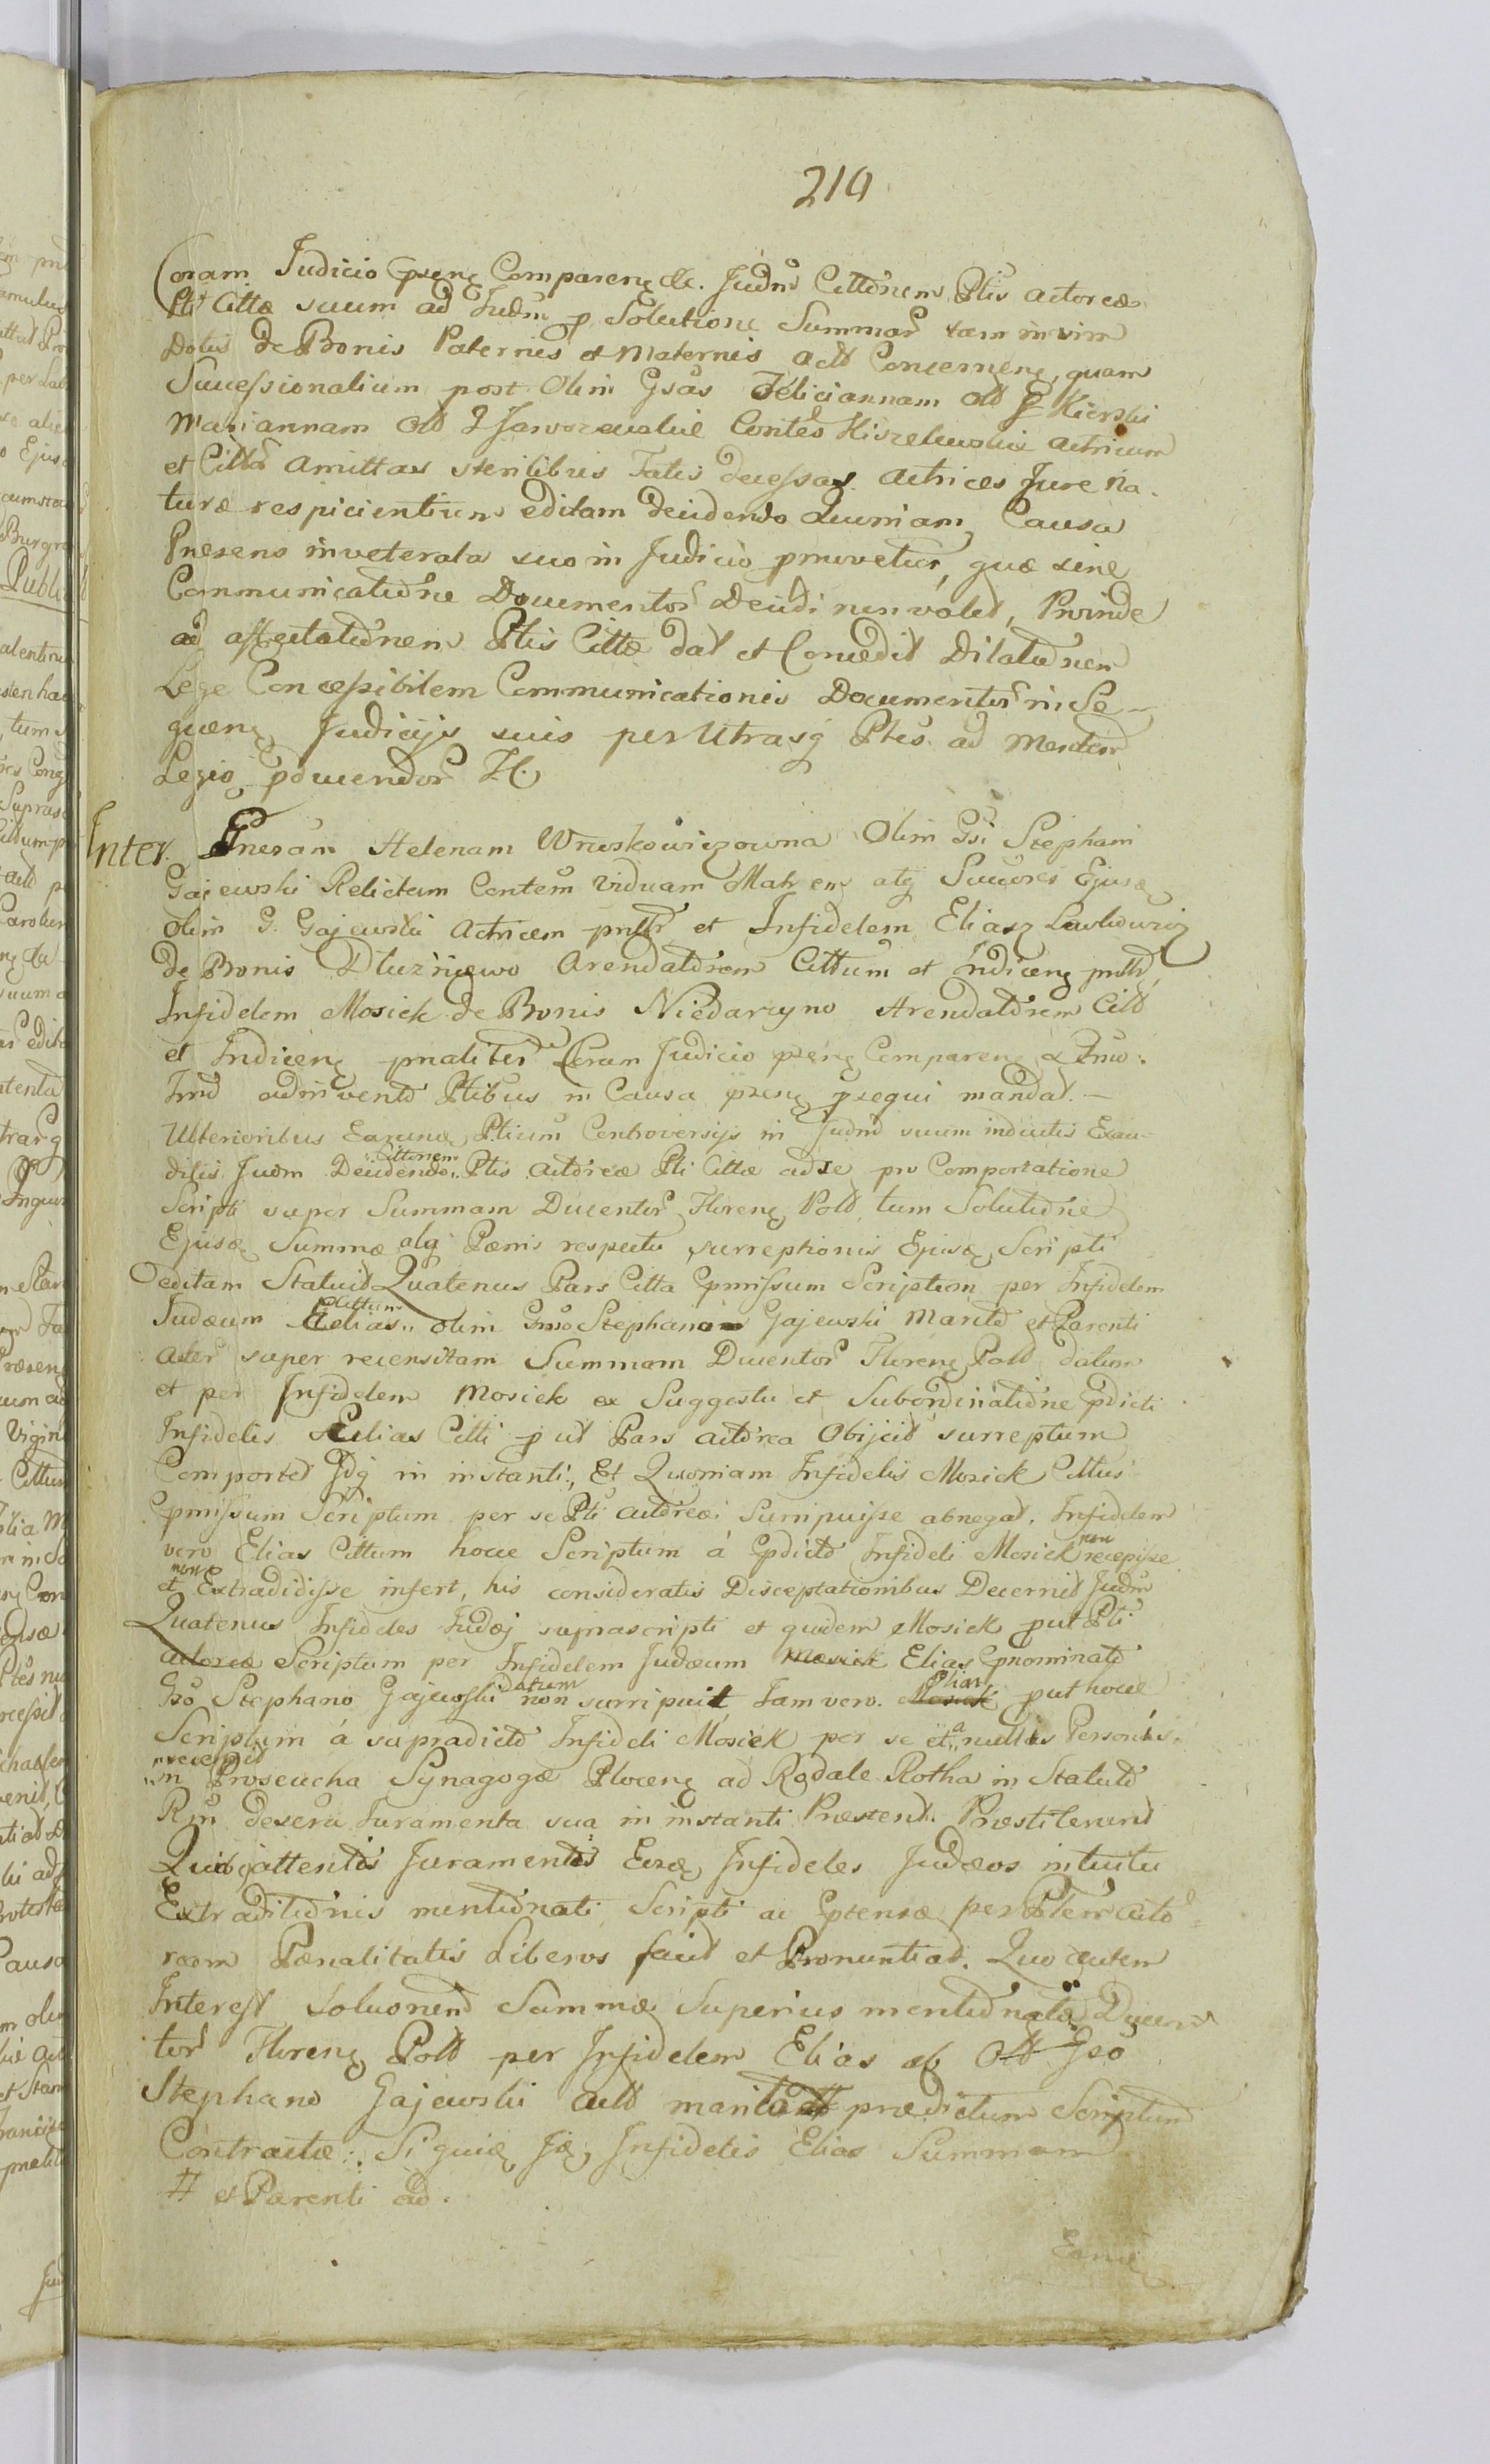 219
Coram Judicio psenq Comparenq &c. Judm Cittõnem Ptis actoreæ
Pti Cittæ suum ad Judm p Solutione Summar tam in vim
Dotis de Bonis Paternis et Maternis actt Concernenq, quam
Successionalium post Olim Gsas Feliciannam Ott G Kierski
Mariannam Ott J Jaworowskie Contes Kiszelewskie actricum
et Citta Amittas sterilibus Fatis decessas actrices Jure na-
turæ respicientium editam decidendo Quoniam Causa
Præsens inveterata suo in Judicio pmovetur, quæ sine
Communicatiõne Documentor Decidi non valet, Proinde
ad affectatiõnem Ptis Cittæ dat et Concedit Dilatiõnem
Lege Concessibilem Communicationis Documentor in Se-
quenq Judicijs suis per Utrasq Ptes ad mentem
Legis pducendor H.
Inter Gnesam Helenam Wruskowiczowna Olim Gsi Stephani
Gajewski Relictam Contem viduam Matrem atq Succres Ejusq
olim G. Gajewski Actricem pnltr et Infidelem Eliasz Lewkowicz
de Bonis Dłuzniewo Arendatõrem Cittum et Indicenq pnltr,
Infidelem Mosiek de Bonis Niedarzyno Arendatõrem Citt
et Indicenq pnaliter Coram Judicio psenq Comparenq &
Jud adinventt Ptibus in Causa psenq psequi mandat.—
Ulterioribus Earunq Ptium Controversijs in Judm suum inductis Exau-
ditis Judm Decidendo Cittonem Ptis actõreæ Pti Cittæ ad se pro Comportatione
Scripti super Summam Ducentor Florenq Polt, tum Solutiõne
Ejusq Summæ atq Pænis respectu surreptionis Ejusq Scripti
editam Statuit Quatenus Pars Citta Epmissum Scriptum per Infidelem
Judæum Elias Cittum olim Gnso Stephano Gajewski Marito et Parenti
acter super recensitam Summam Ducentor Florenq Polt datum
et per Infidelem Mosiek ex Suggestu et Subordinatiõne Epdicti
Infidelis Elias Citti p ut Pars actõrea Obijcit surreptum
Comportet Idq in instanti, Et Quoniam Infidelis Mosiek Cittus
Epmissum Scriptum per se Pti actõreæ Surripuisse abnegat, Infidelem
vero Elias Cittum hocce Scriptum á Epdicto Infideli Mosiek non recepisse
et non Extradidisse infert, his consideratis Disceptationibus Decernit Judm
Quatenus Infideles Judæj suprascripti et quidem Mosiek put Pti
actoreæ Scriptum per Infidelem Judæum Mosiek Elias Epnominato
Gso Stephano Gajewski datum non surripuit, Jam vero Mosiek Elias put hocce
Scriptum á supradicto Infideli Mosiek per se et a nullis Personis
recempit in Proseucha Synagogæ Plocenq ad Rodale Rotha in Statuto
Rni dexera Juramenta sua in instanti Præstent. Præstiterunt
Quibq attentis Juramentis Eosq Infideles Judæos intuitu
Extraditiõnis mentiõnati Scripti ac Eptensæ per Ptem actõ-
ream Pænalitatis Liberos facit et Pronuntiat. Quo autem
Interest Soluonem Summæ Superius mentiõnatæ Ducen-
tor Florenq Polt per Infidelem Elias ab Ott Gso
Stephano Gajewski actt marito # prædictum Scriptum
Contractæ. Siquiq Jq, Infidelis Elias Summam
# et Parenti ad.
Eanq